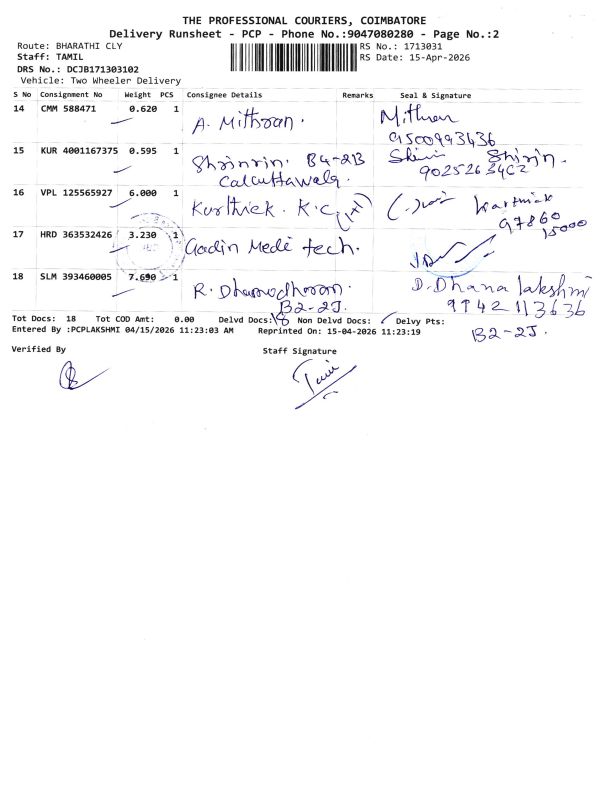 THE PROFESSIONAL COURIERS, COIMBATORE
Delivery Runsheet - PCP - Phone No.:9047080280 - Page No.:2
Route: BHARATHI CLY RS No.: 1713031
Staff: TAMIL RS Date: 15-Apr-2026
DRS No.: DCJB171303102
Vehicle: Two Wheeler Delivery
S No Consignment No Weight PCS Consignee Details Remarks Seal & Signature
14 CMM 588471 0.620 1 A. Mithran. Mithran
9500993436
15 KUR 4001167375 0.595 1 B4-2B Shirin.
Calcuttawala. 9025263402
16 VPL 125565927 6.000 1 Karthick. K.C (1+1) Karthick
97860
15000
17 HRD 363532426 3.230 1 Medi tech.
18 SLM 393460005 7.690 1 R. Dhamodharan. D. Dhana lakshmi
B2-2J. 9942113636
Tot Docs: 18 Tot COD Amt: 0.00 Delvd Docs: 18 Non Delvd Docs: Delvy Pts:
B2-2J.
Entered By :PCPLAKSHMI 04/15/2026 11:23:03 AM Reprinted On: 15-04-2026 11:23:19
Verified By Staff Signature